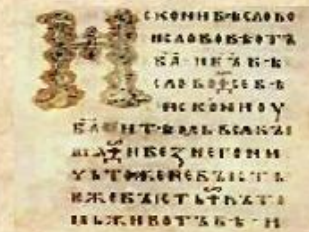 ИСКОНИ БѢ СЛОВО
И СЛОВО БѢ ОТЪ
БА҃ · И БЪ БѢ
СЛОВО · СЕ БѢ
ИСКОНИ ОУ
БА҃ И ТѢМЬ ВСѢ БЪІ
ШѦ И БЕЗ НЕГО НИ
ЧЬТОЖЕ НЕ БЪІСТЪ
ЕЖЕ БЪІСТЪ ВЪ ТО
МЬ ЖИВОТЪ БѢ · И